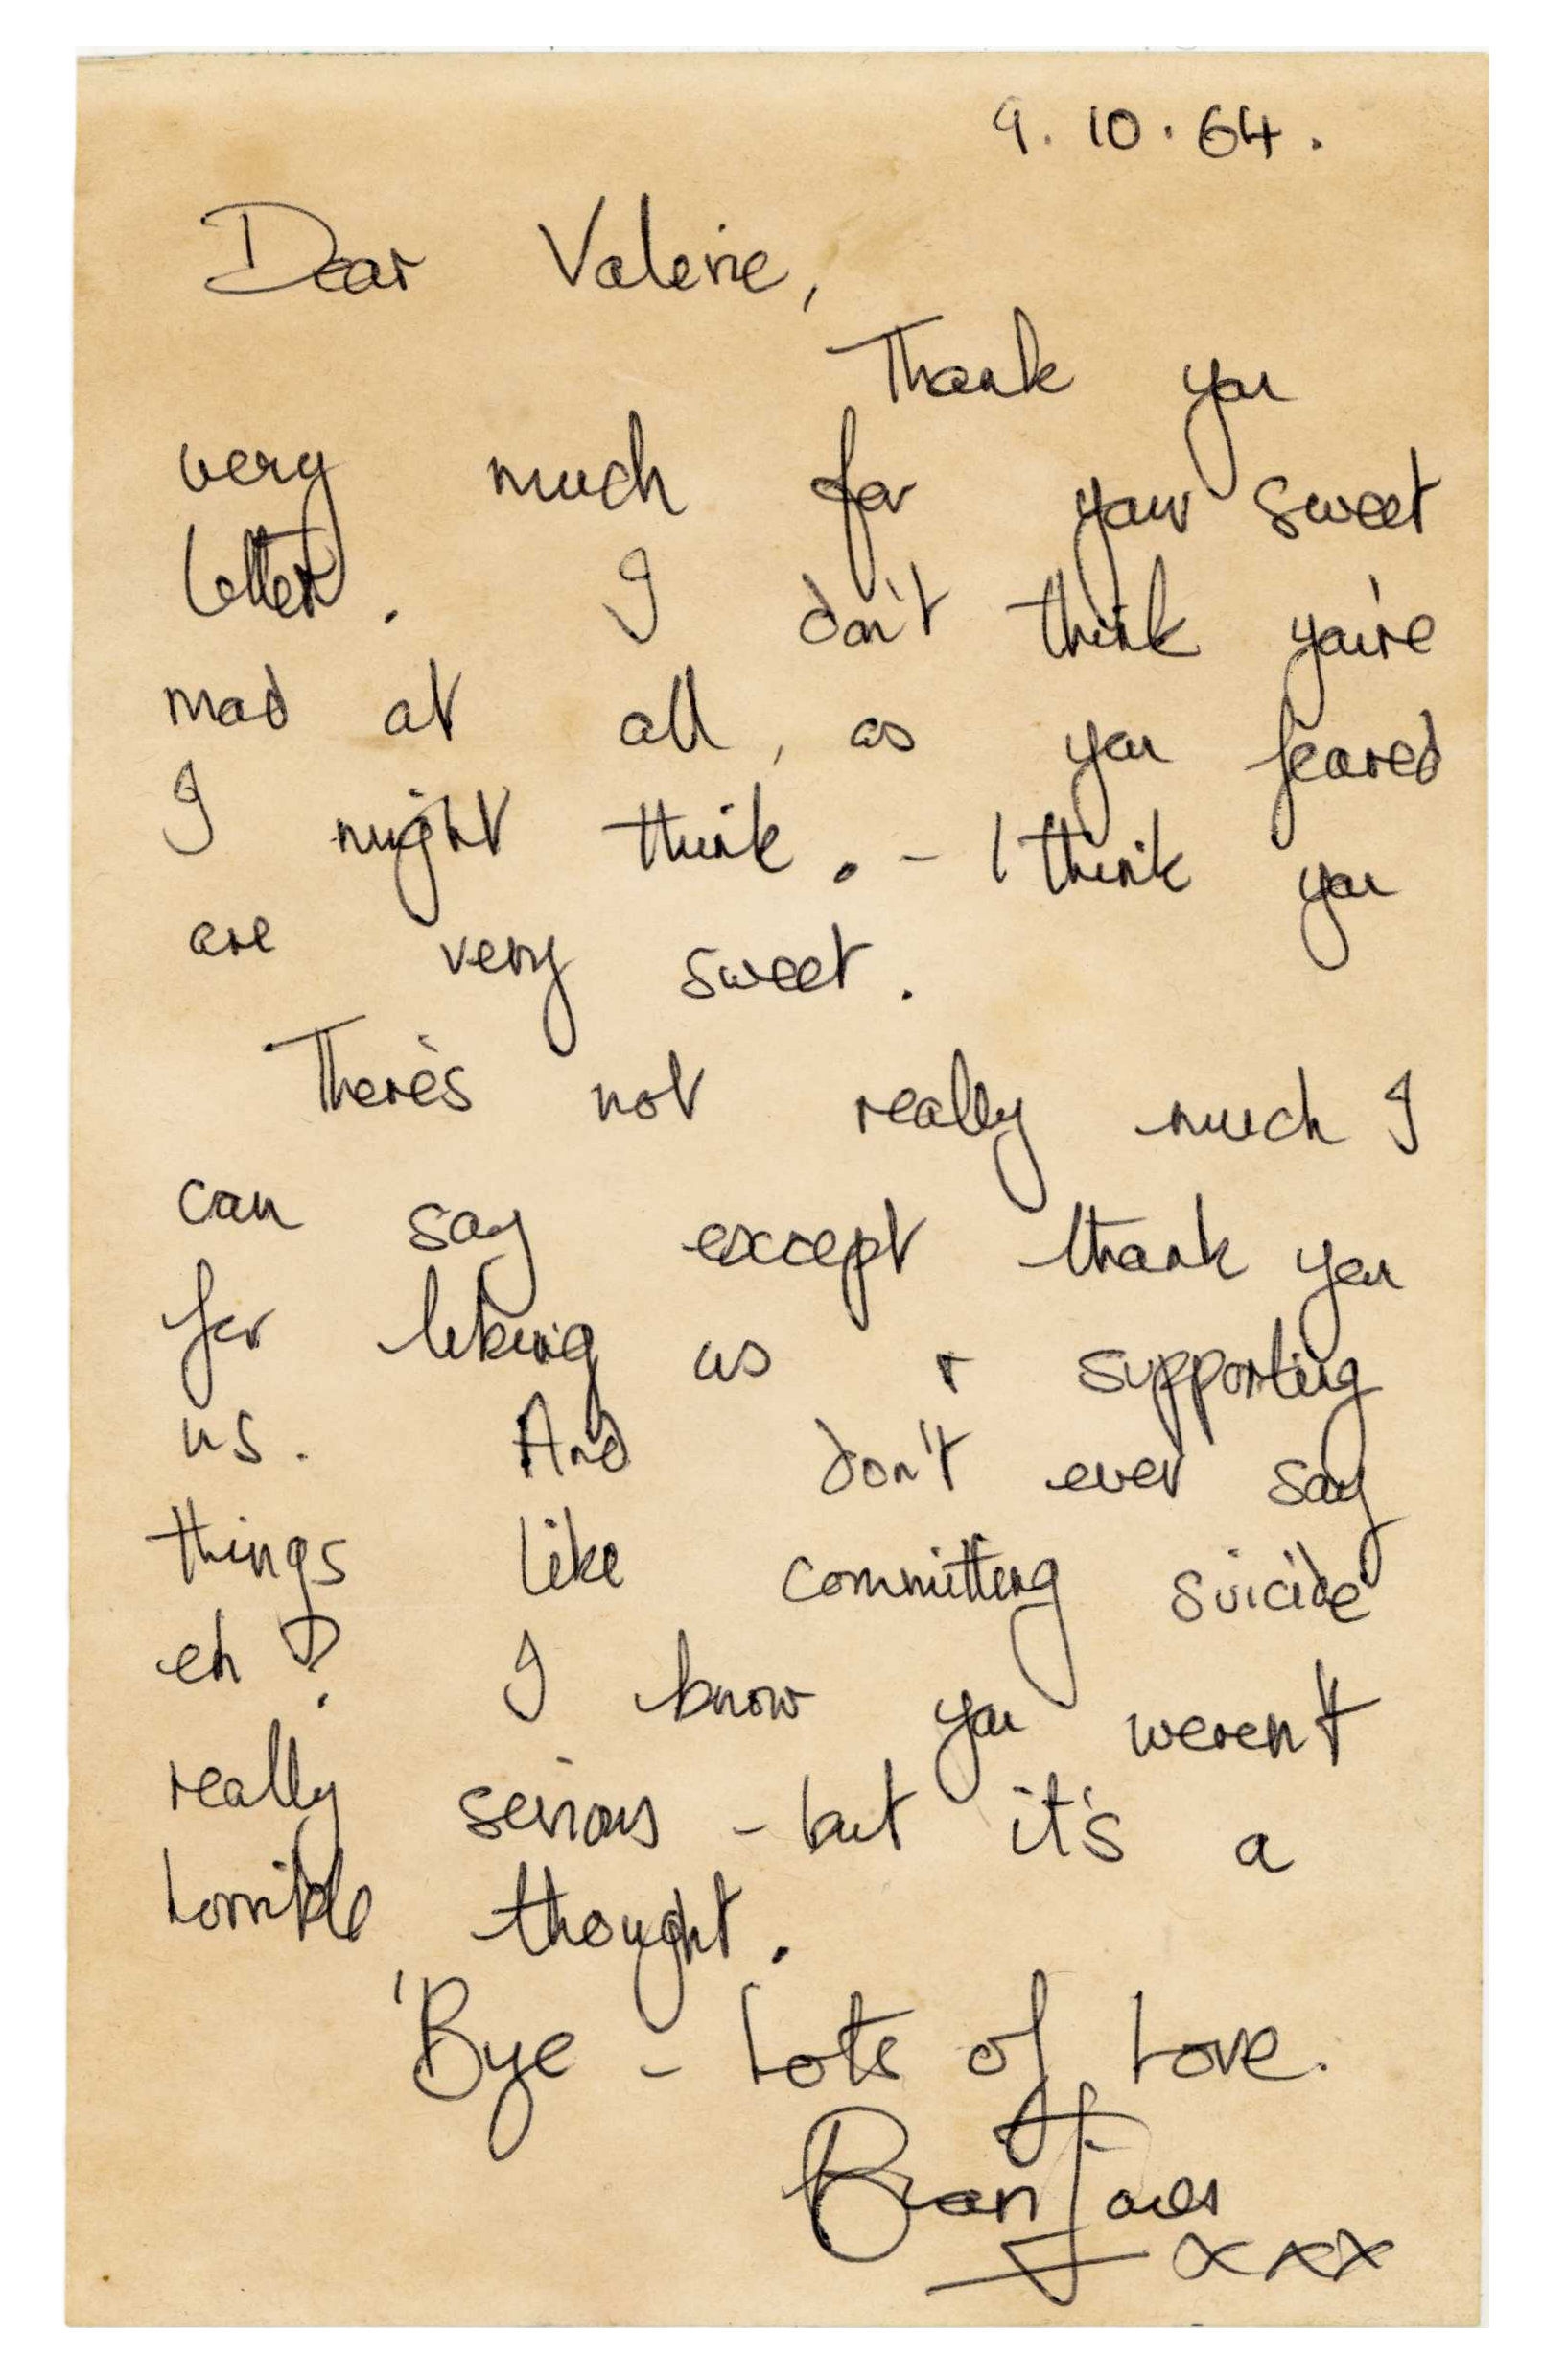 9.10.64.
Dear Valerie,
Thank you
very much for your sweet
letter. I don't think you're
mad at all, as you feared
I might think. - I think you
are very sweet.
There's not really much I
can say except thank you
for liking us + supporting
us. And don't ever say
things like committing suicide
eh? I know you weren't
really serious - but it's a
horrible thought.
'Bye - Lots of Love.
Brian Jones
xxx